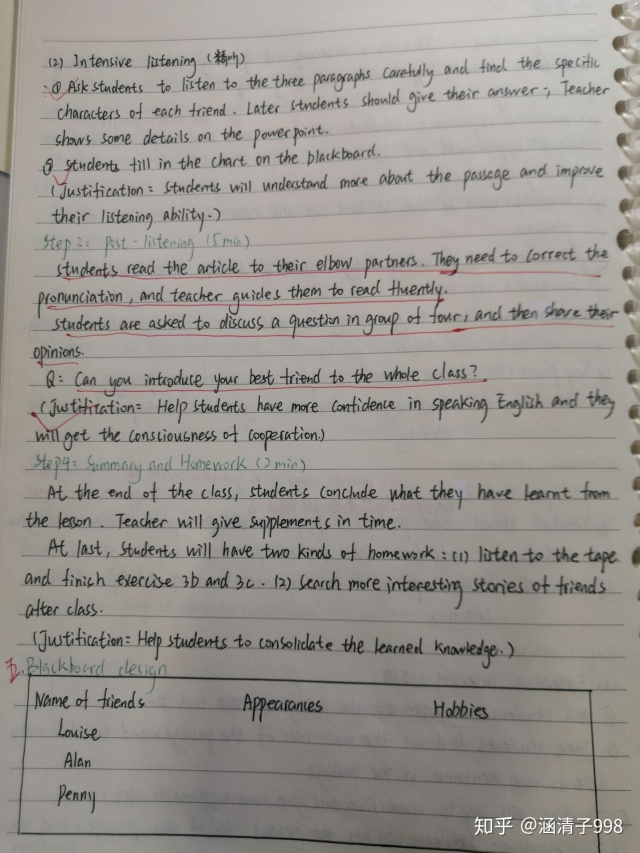 (2) Intensive listening (精听)
① Ask students to listen to the three paragraphs carefully and find the specific
characters of each friend. Later students should give their answer, Teacher
shows some details on the powerpoint.
② students fill in the chart on the blackboard.
(Justification: students will understand more about the passage and improve
their listening ability.)
Step3: Post-listening (5min)
students read the article to their elbow partners. They need to correct the
pronunciation, and teacher guides them to read fluently.
students are asked to discuss a question in group of four, and then share their
opinions.
Q: Can you introduce your best friend to the whole class?
(Justification: Help students have more confidence in speaking English and they
will get the consciousness of cooperation.)
Step4: Summary and Homework (2min)
At the end of the class, students conclude what they have learnt from
the lesson. Teacher will give supplements in time.
At last, students will have two kinds of homework: (1) listen to the tape
and finish exercise 3b and 3c. (2) search more interesting stories of friends
after class.
(Justification: Help students to consolidate the learned knowledge.)
五. Blackboard design
Name of friends Appearances Hobbies
Louise
Alan
Penny
知乎 @涵清子998